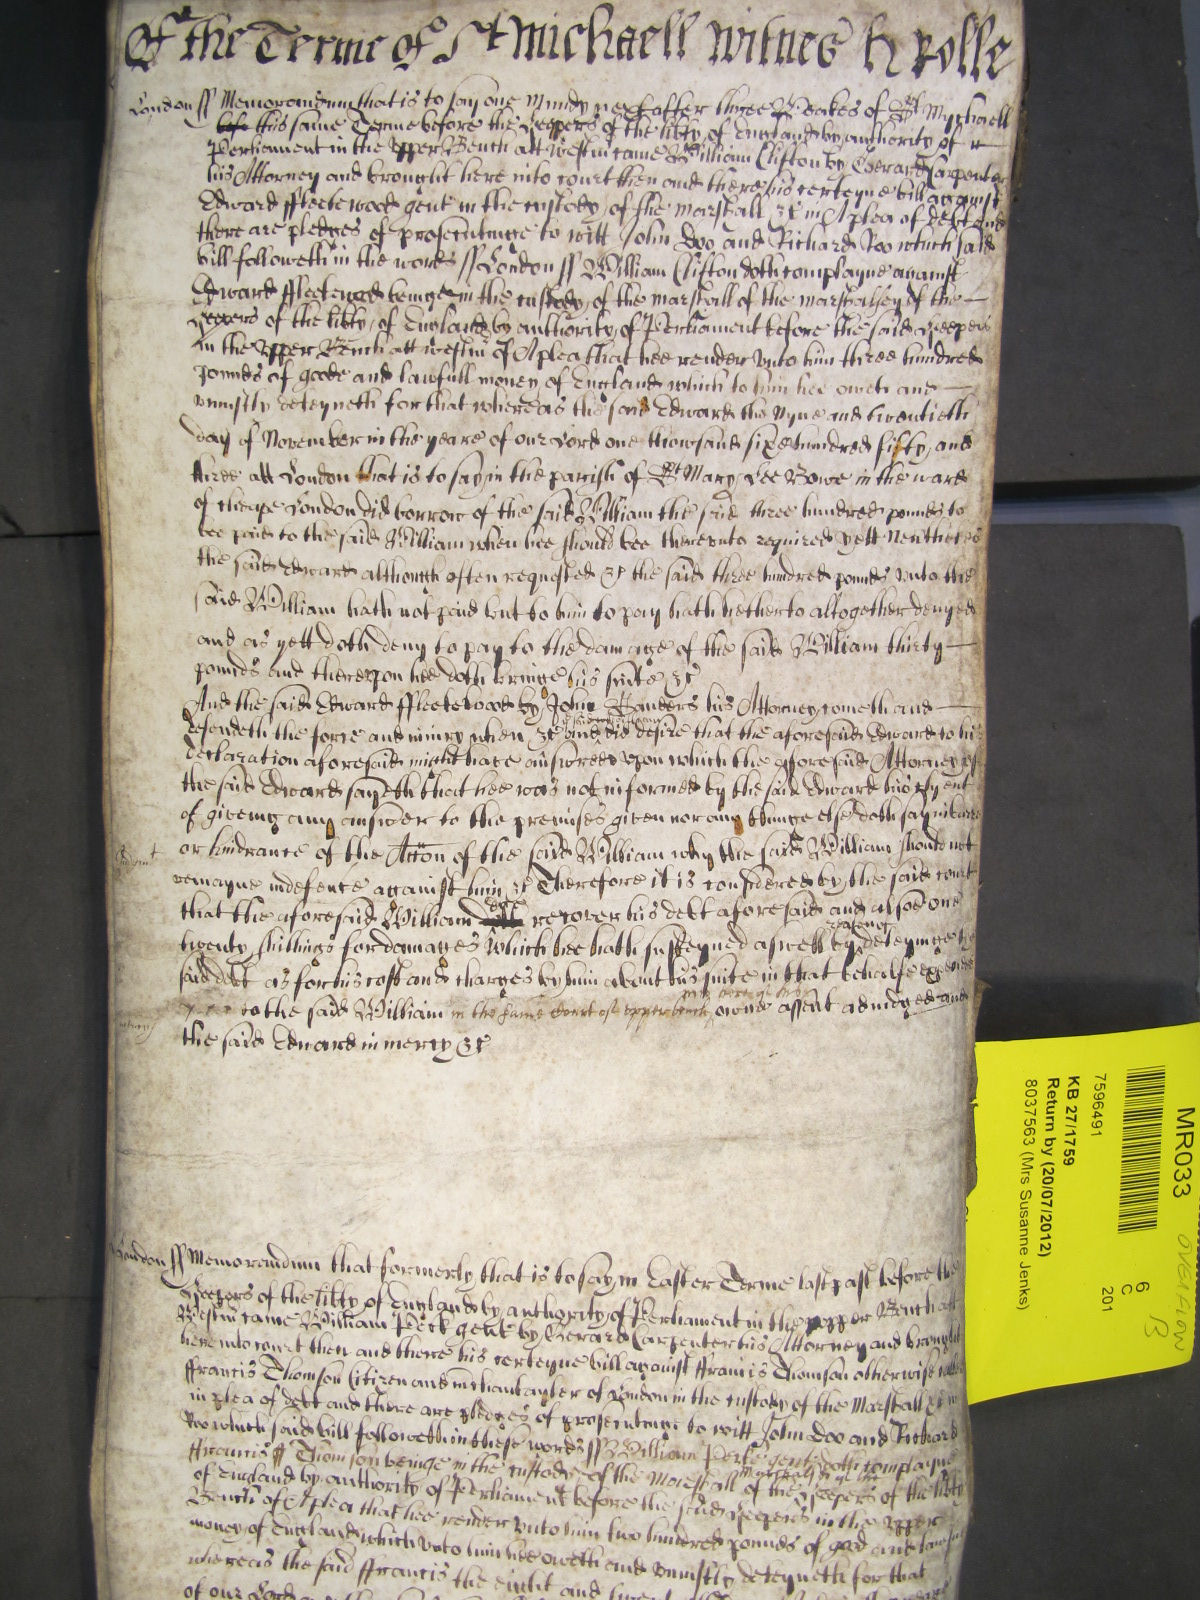 Of the Terme of St Michaell Witnes H Rolle
London ss Memorandum that is to say one Munday next after three Weekes of St Mychaell
this same Terme before the Keepers of the libty of England by authority of
Perliament in the Vpper Bench att Westm came William Clifton by Gerard Carpenter
his Attorney and brought here into court then and there his certeyne bill against
Edward ffleetewood gent in the custody of the Marshall &c in A plea of debt and
there are pledges of prosecutinge to witt John Doo and Richard Roo which said
bill followeth in these words ss London ss William Clifton doth complayne against
Edward ffleetewood beinge in the custody of the marshall of the marshalsey of the
Keepers of the libty of England by authority of Perliament before the said Keepers
in the Vpper Bench att Westm of A plea that hee render vnto him three hundred
pounds of goode and lawfull money of England which to him hee oweth and
vniustly deteyneth for that whereas the said Edward the Nyne and twentieth
day of November in the yeare of our Lord one thowsand sixe hundred fifty and
three att London that is to say in the parrish of St Mary Lee Bowe in the ward
of Cheape London did borrow of the said William the said three hundred pounds to
bee paid to the said William when hee should bee therevnto required yett Nevertheles
the said Edward although often requested &c the said three hundred pounds vnto the
said William hath not paid but to him to pay hath hetherto altogether denyed
and as yett doth deny to pay to the damage of the said William thirty
pounds and therevpon hee doth bringe his suite &c
And the said Edward ffleetewood by John his Attorney cometh and
defendeth the force and iniury when &c and did desire that the aforesaid Edward to his
declaration aforesaid might have answered vpon which the aforesaid Attorney of
the said Edward sayeth that hee was not informed by the said Edward his Clyent
of giveing any answer to the premises given nor any thinge else doth say in barre
or hindrance of the Accon of the said William why the said William should not
remayne indefence against him &c Therefore it is considered by the said court
that the aforesaid William doe recover his debt aforesaid and alsoe one
twenty shillings for damages which hee hath susteyned aswell by reason of deteyninge the
said debt as for his cost and charges by him about his suite in that behalfe expended
to the said William in the same Court of vpper bench owne assent adiudged and
the said Edward in mercy &c
London ss Memorandum that formerly that is to say in Easter Terme last past before the
Keepers of the libty of England by authority of Perliament in the vpper Bench att
Westm came William Peck gent by Gerard Carpenter his Attorney and brought
here into court then and there his certeyne bill against ffrancis Thomson otherwise called
ffrancis Thomson Citizen and m'chantayler of London in the custody of the Marshall &c in
in plea of debt and there are pledges of prosecutinge to witt John Doo and Richard
Roo which said bill followeth in these words ss William Peck gent doth complayne
ffrancis Thomson beinge in the custody of the Marshall of the Keepers of the libty
of England by authority of Perliament before the said Keepers in the vpper
Bench of A plea that hee render vnto him two hundred pounds of good and lawfull
money of England which vnto him hee oweth and vniustly deteyneth for that
whereas the said ffrancis the eight and
of our Lord
MR033
7596491
KB 27/1759
Return by (20/07/2012)
8037563 (Mrs Susanne Jenks)
6
C
201
OVERFLOW
B